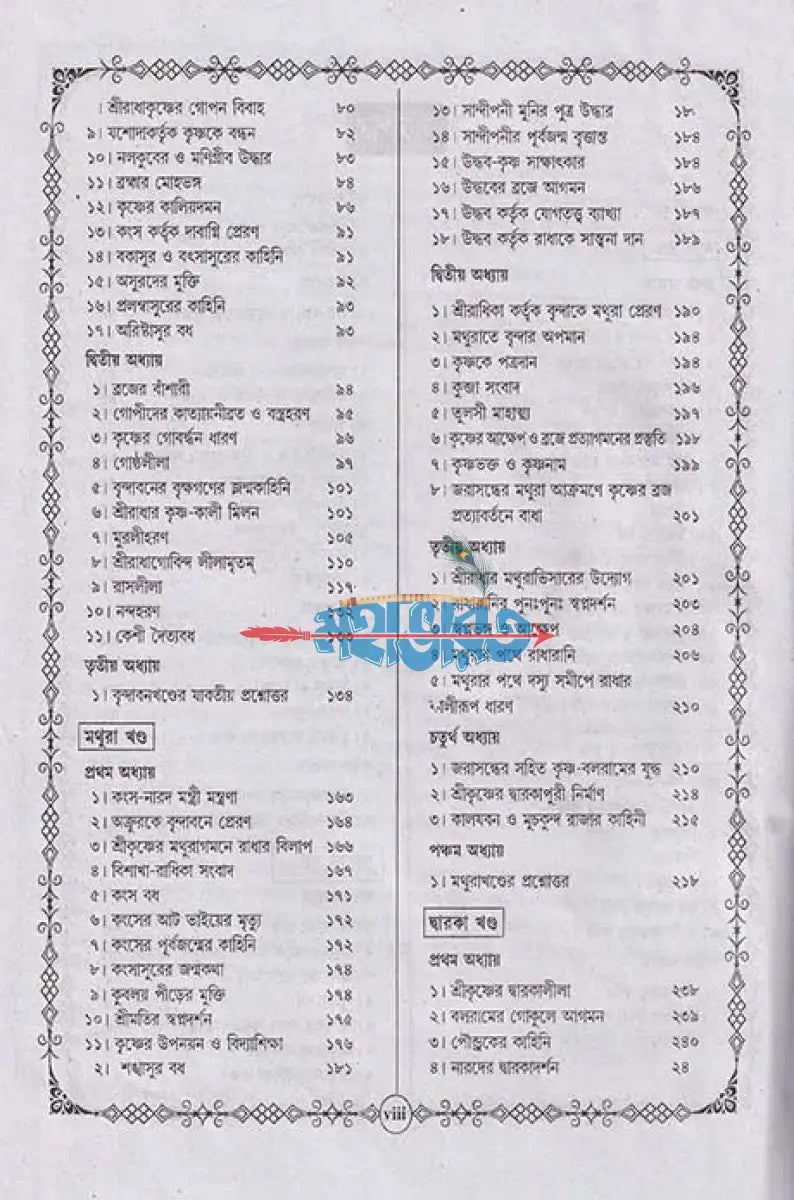 । শ্রীরাধাকৃষ্ণের গোপন বিবাহ ৮০
৯। যশোদাকর্তৃক কৃষ্ণকে বন্ধন ৮২
১০। নলকুবের ও মণিগ্রীব উদ্ধার ৮৩
১১। ব্রহ্মার মোহভঙ্গ ৮৪
১২। কৃষ্ণের কালিয়দমন ৮৬
১৩। কংস কর্তৃক দাবাগ্নি প্রেরণ ৯১
১৪। বকাসুর ও বৎসাসুরের কাহিনি ৯১
১৫। অসুরদের মুক্তি ৯২
১৬। প্রলম্বাসুরের কাহিনি ৯৩
১৭। অরিষ্টাসুর বধ ৯৩
দ্বিতীয় অধ্যায়
১। ব্রজের বাঁশারী ৯৪
২। গোপীদের কাত্যায়নীব্রত ও বস্ত্রহরণ ৯৫
৩। কৃষ্ণের গোবর্দ্ধন ধারণ ৯৬
৪। গোষ্ঠলীলা ৯৭
৫। বৃন্দাবনের বৃক্ষগণের জন্মকাহিনি ১০১
৬। শ্রীরাধার কৃষ্ণ-কালী মিলন ১০১
৭। মুরলীহরণ ১০৫
৮। শ্রীরাধাগোবিন্দ লীলামৃতম্ ১১০
৯। রাসলীলা ১১৭
১০। নন্দহরণ ১৩২
১১। কেশী দৈত্যবধ ১৩৩
তৃতীয় অধ্যায়
১। বৃন্দাবনখণ্ডের যাবতীয় প্রশ্নোত্তর ১৩৪
মথুরা খণ্ড
প্রথম অধ্যায়
১। কংস-নারদ মন্ত্রী মন্ত্রণা ১৬৩
২। অক্রুরকে বৃন্দাবনে প্রেরণ ১৬৪
৩। শ্রীকৃষ্ণের মথুরাগমনে রাধার বিলাপ ১৬৬
৪। বিশাখা-রাধিকা সংবাদ ১৬৭
৫। কংস বধ ১৭১
৬। কংসের আট ভাইয়ের মৃত্যু ১৭২
৭। কংসের পূর্বজন্মের কাহিনি ১৭২
৮। কংসাসুরের জন্মকথা ১৭৪
৯। কুবলয় পীড়ের মুক্তি ১৭৪
১০। শ্রীমতির স্বপ্নদর্শন ১৭৫
১১। কৃষ্ণের উপনয়ন ও বিদ্যাশিক্ষা ১৭৬
২। শঙ্খাসুর বধ ১৮১
১৩। সান্দীপনী মুনির পুত্র উদ্ধার ১৮
১৪। সান্দীপনীর পূর্বজন্ম বৃত্তান্ত ১৮৪
১৫। উদ্ধব-কৃষ্ণ সাক্ষাৎকার ১৮৪
১৬। উদ্ধবের ব্রজে আগমন ১৮৬
১৭। উদ্ধব কর্তৃক যোগতত্ত্ব ব্যাখ্যা ১৮৭
১৮। উদ্ধব কর্তৃক রাধাকে সান্ত্বনা দান ১৮৯
দ্বিতীয় অধ্যায়
১। শ্রীরাধিকা কর্তৃক বৃন্দাকে মথুরা প্রেরণ ১৯০
২। মথুরাতে বৃন্দার অপমান ১৯৪
৩। কৃষ্ণকে পত্রদান ১৯৪
৪। কুব্জা সংবাদ ১৯৬
৫। তুলসী মাহাত্ম্য ১৯৭
৬। কৃষ্ণের আক্ষেপ ও ব্রজে প্রত্যাগমনের প্রস্তুতি ১৯৮
৭। কৃষ্ণভক্ত ও কৃষ্ণনাম ১৯৯
৮। জরাসন্ধের মথুরা আক্রমণে কৃষ্ণের ব্রজ
প্রত্যাবর্তনে বাধা ২০১
তৃতীয় অধ্যায়
১। শ্রীরাধার মথুরাভিসারের উদ্যোগ ২০১
২। রাধারানির পুনঃপুনঃ স্বপ্নদর্শন ২০৩
৩। স্বপ্নভঙ্গ ও আক্ষেপ ২০৪
মহাভারত
৪। মথুরার পথে রাধারানি ২০৬
৫। মথুরার পথে দস্যু সমীপে রাধার
কালীরূপ ধারণ ২১০
চতুর্থ অধ্যায়
১। জরাসন্ধের সহিত কৃষ্ণ-বলরামের যুদ্ধ ২১০
২। শ্রীকৃষ্ণের দ্বারকাপুরী নির্মাণ ২১৪
৩। কালযবন ও মুচকুন্দ রাজার কাহিনী ২১৫
পঞ্চম অধ্যায়
১। মথুরাখণ্ডের প্রশ্নোত্তর ২১৮
দ্বারকা খণ্ড
প্রথম অধ্যায়
১। শ্রীকৃষ্ণের দ্বারকালীলা ২৩৮
২। বলরামের গোকুলে আগমন ২৩৯
৩। পৌণ্ড্রকের কাহিনি ২৪০
৪। নারদের দ্বারকাদর্শন ২৪
viii